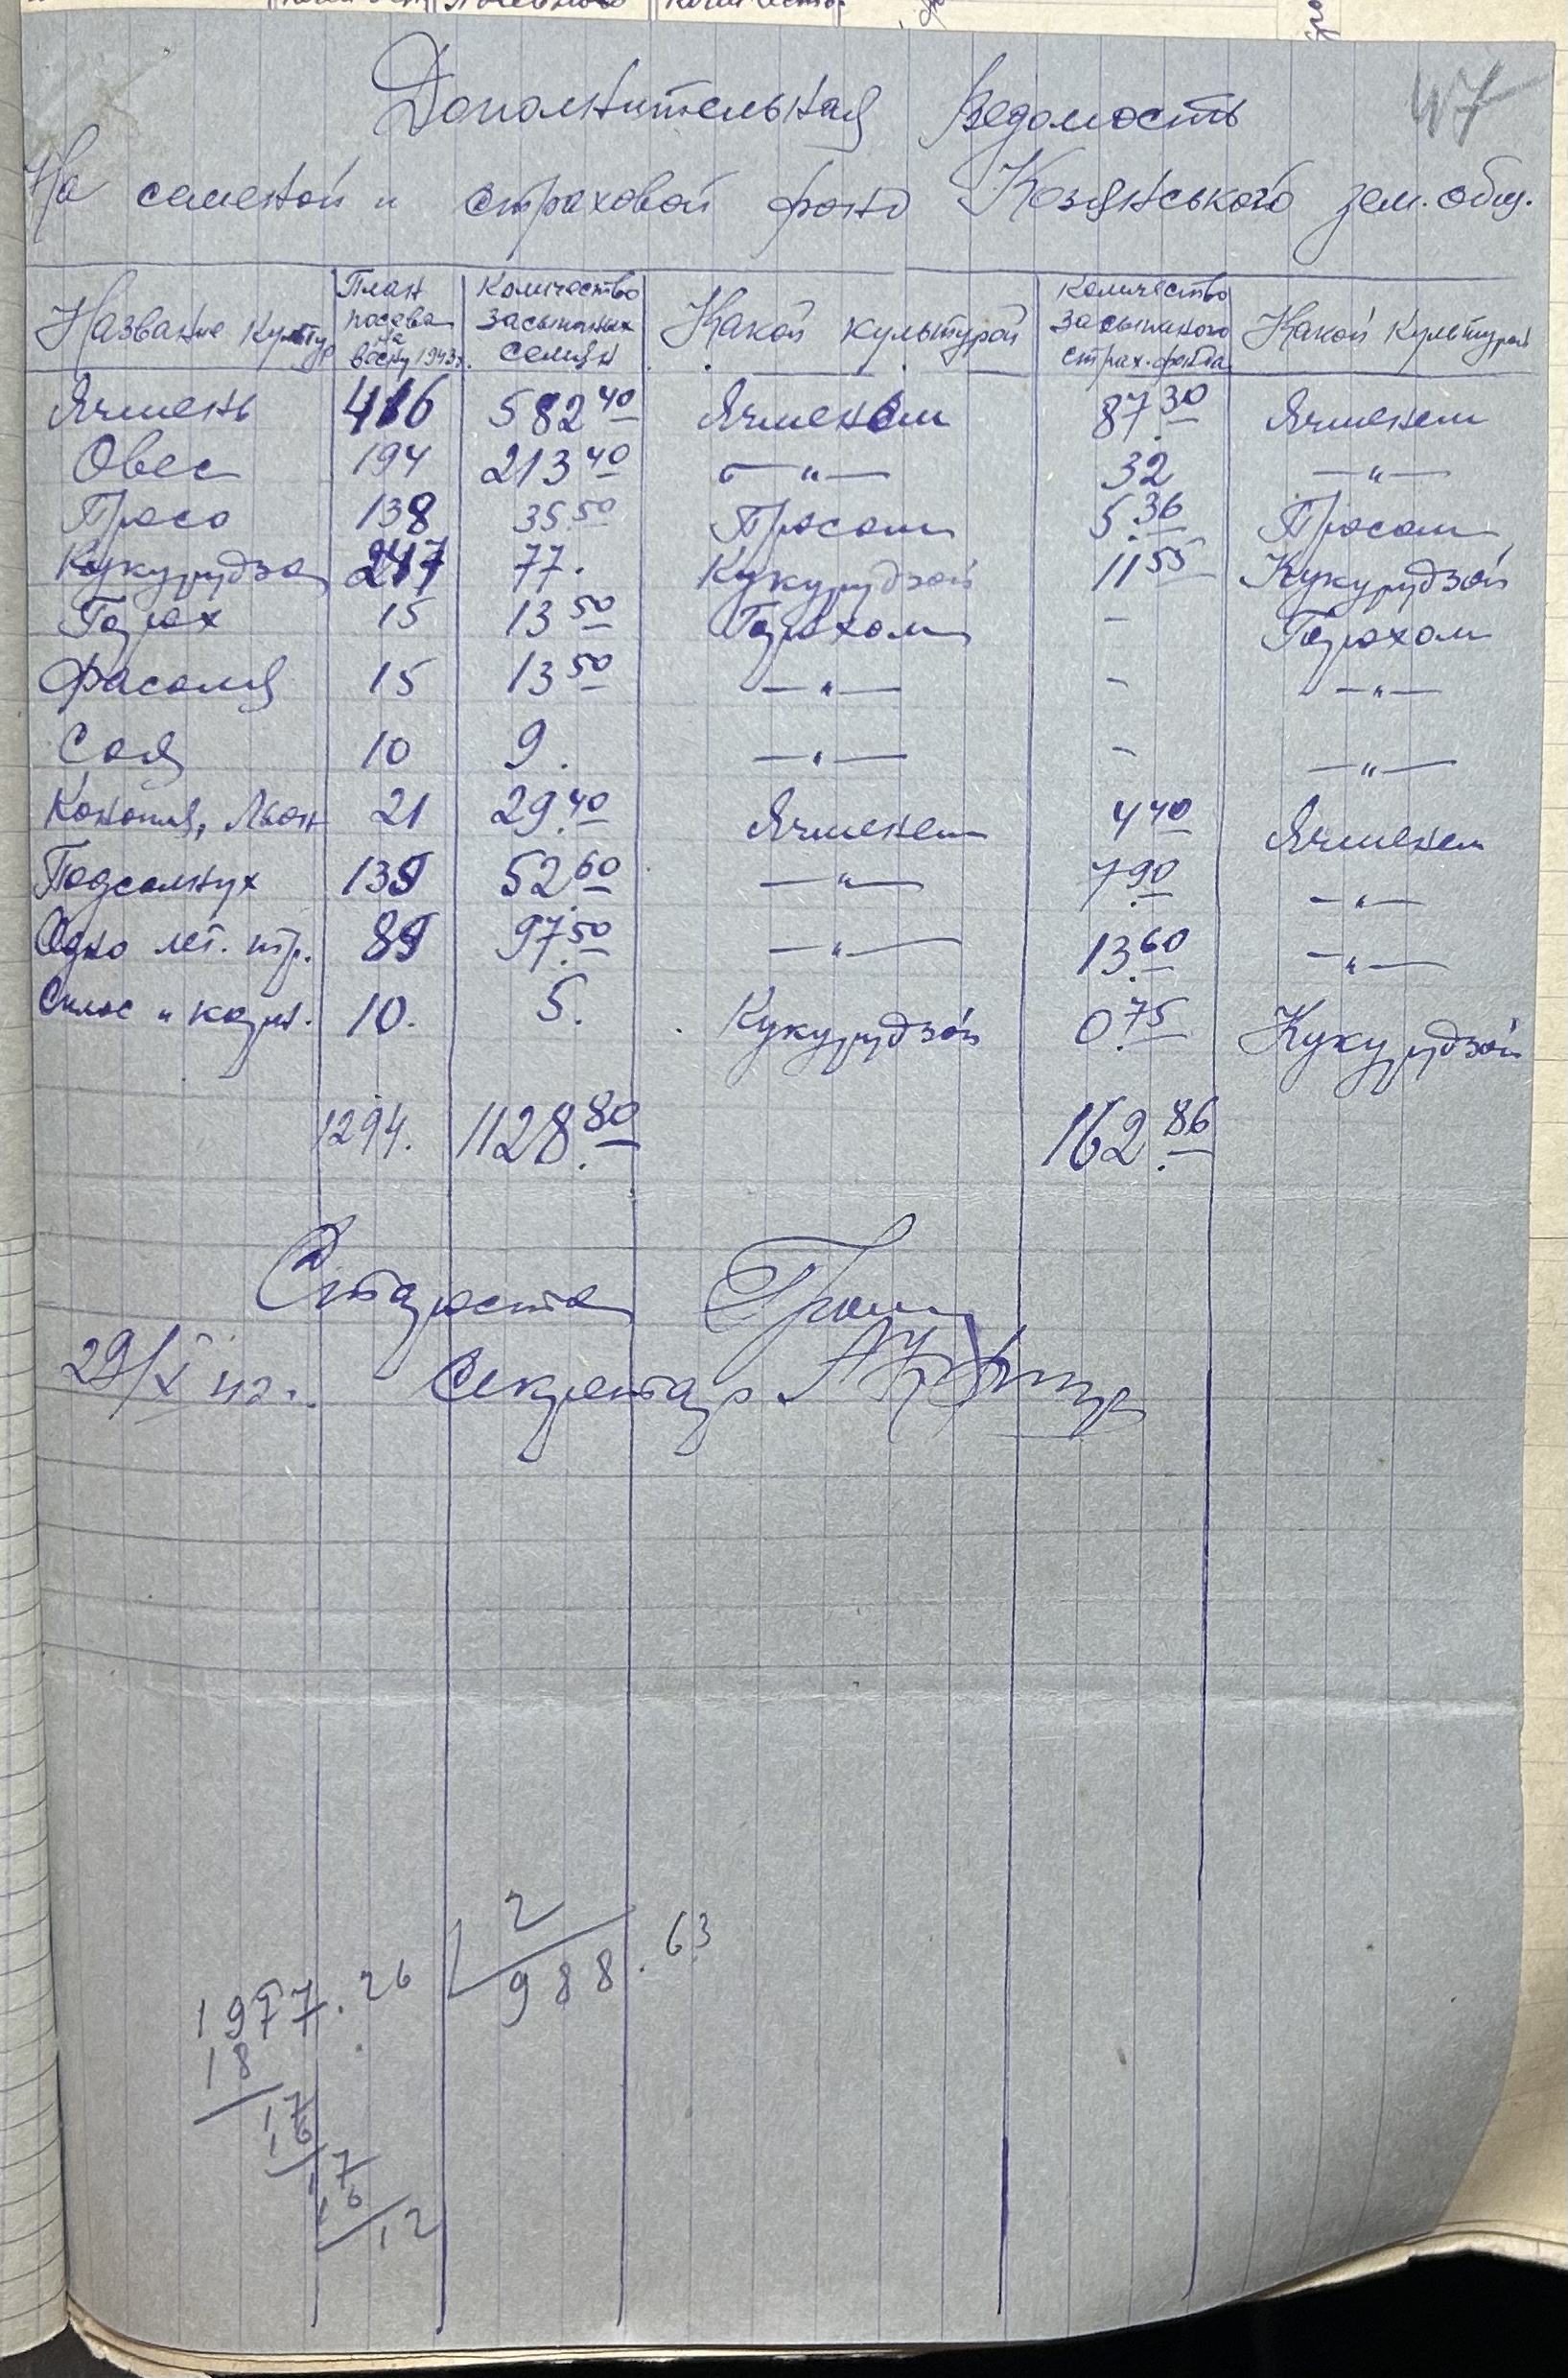 47
Дополнительная ведомость
На семеной и страховой фонд Козянського зем. общ.
Название культур | План посева на весну 1943 г. | Количество засыпаных семян | Какой культурой | Количество засыпаного страх. фонда | Какой культурой
Ячмень 416 582.40 Ячменем 87.30 Ячменем
Овес 194 213.40 —"— 32 —"—
Просо 138 35.50 Просом 5.36 Просом
Кукурудза 247 77. Кукурудзой 11.55 Кукурудзой
Горох 15 13.50 Горохом - Горохом
Фасоля 15 13.50 —"— - —"—
Соя 10 9. —"— - —"—
Конопля, Льон 21 29.40 Ячменем 4.40 Ячменем
Подсолнух 139 52.60 —"— 7.90 —"—
Одно лет. тр. 89 97.50 —"— 13.60 —"—
Силос и корм. 10. 5. Кукурудзой 0.75 Кукурудзой
1294. 1128.80 162.86
Староста
29/X 42 г. Секретар
1977.26 2
988.63
18
17
16
17
16
12